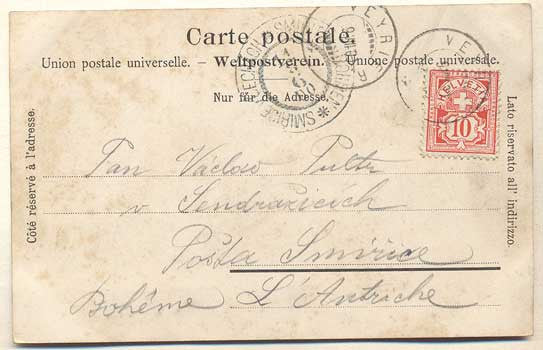 Carte postale.
Union postale universelle. – Weltpostverein. – Unione postale universale.
Nur für die Adresse.
Côté réservé à l'adresse.
Lato riservato all' indirizzo.
VEYRIER
SMIŘICE
HELVETIA
10
Pan Václav
v Sendražicích
Pošta Smiřice
Bohême L'Autriche